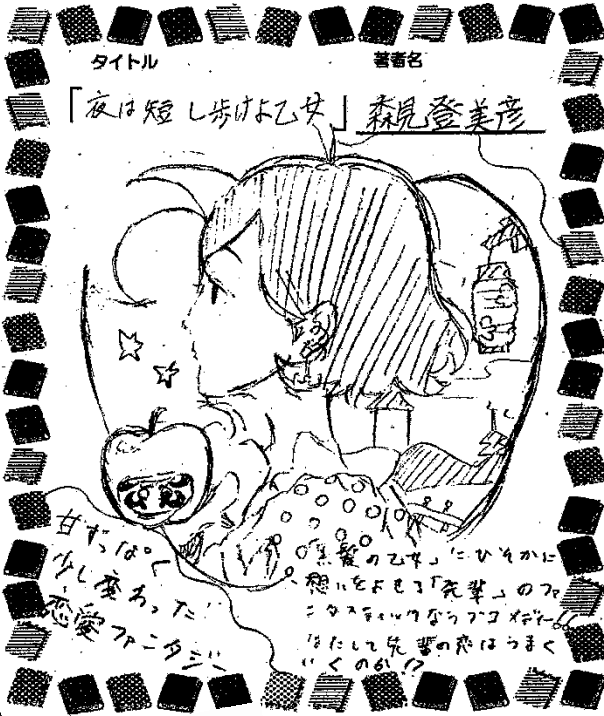 タイトル
著者名
「夜は短し歩けよ乙女」 森見登美彦
甘ずっぱく
少し変わった
恋愛ファンタジー
「黒髪の乙女」にひそかに
想いをよせる「先輩」のファ
ンタスティックなラブコメディー!!
はたして先輩の恋はうまく
いくのか!?